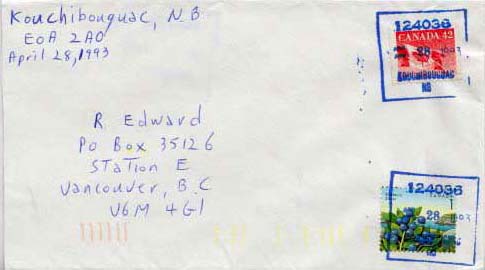 Kouchibouguac, N B
E0A 2A0
April 28, 1993
R. Edward
Po Box 35126
STaTion E
Vancouver, B C
V6M 4G1
124036
CANADA 42
28 1993
KOUCHIBOUGUAC
NB
124036
28 1993
NB